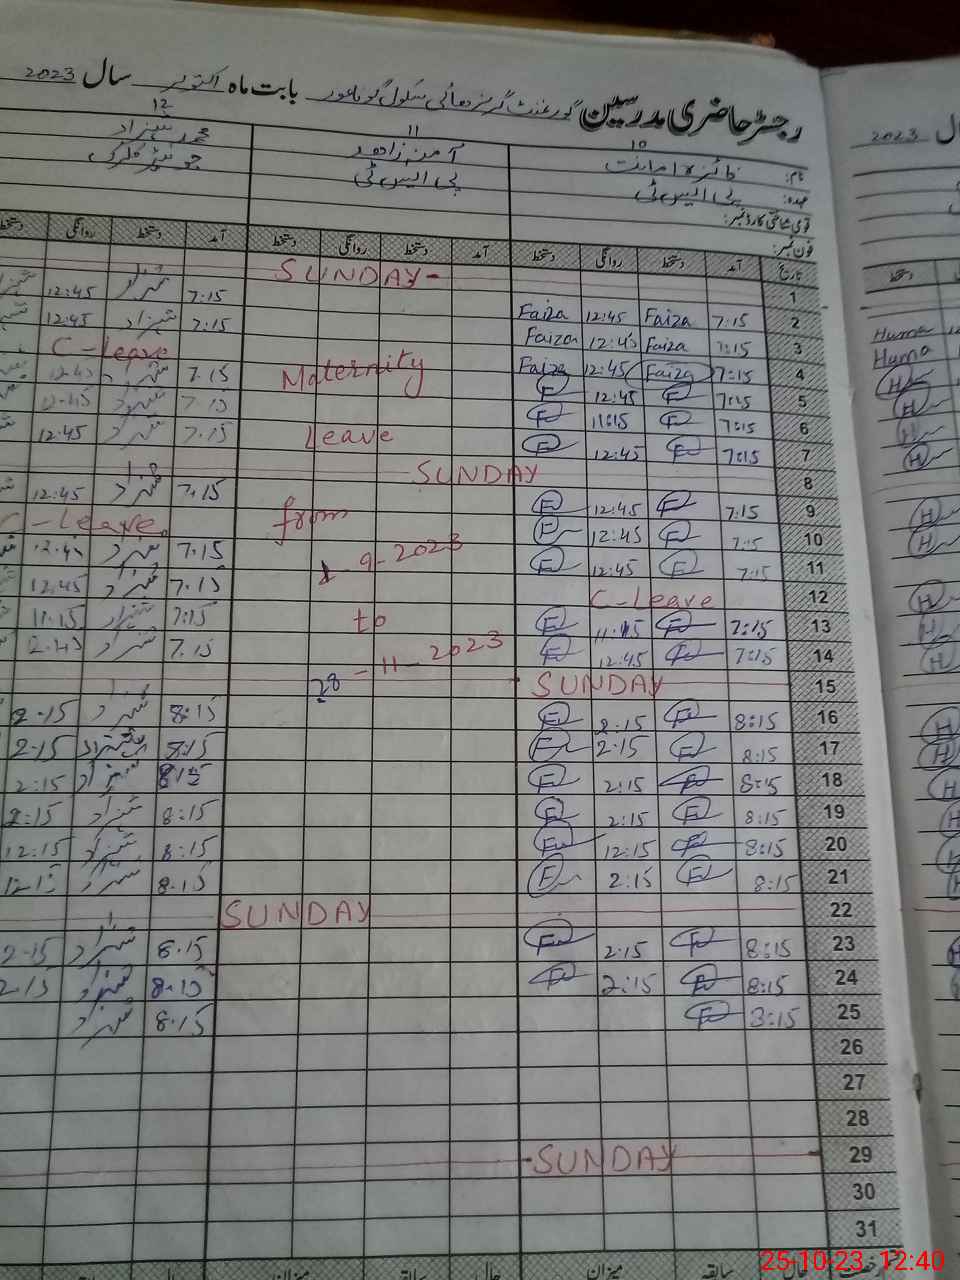 رجسٹر حاضری مدرسین گورنمنٹ گرلز ھائی سکول بابت ماہ اکتوبر سال 2023
2023
10 11 12
نام: فائزہ امانت آمنہ زاہد محمد شہزاد
عہدہ: پی ایس ٹی پی ایس ٹی جونیئر کلرک
قومی شناختی کارڈ نمبر:
فون نمبر:
تاریخ آمد دستخط روانگی دستخط آمد دستخط روانگی دستخط آمد دستخط روانگی دستخط
1 SUNDAY
2 7:15 Faiza 12:45 Faiza 7:15 شہزاد 12:45
3 7:15 Faiza 12:45 Faiza 7:15 شہزاد 12:45 Huma
4 7:15 Faiza 12:45 Faiza Maternity C-Leave Huma
5 7:15 F 12:45 F 7:15 شہزاد 12:45 H
6 7:15 F 11:15 F Leave 7:15 شہزاد H
7 7:15 F 12:45 F 7:15 شہزاد 12:45 H
8 SUNDAY
9 7:15 F 12:45 F from 7:15 شہزاد 12:45 H
10 7:15 F 12:45 F C-Leave H
11 7:15 F 12:45 F 1-9-2023 7:15 شہزاد 12:45
12 C-Leave 7:15 شہزاد 12:45 H
13 7:15 F 11:15 F to 7:15 شہزاد 11:15 H
14 7:15 F 12:45 F 28-11-2023 7:15 شہزاد 12:45 H
15 SUNDAY
16 8:15 F 2:15 F 8:15 شہزاد 2:15 H
17 8:15 F 2:15 F 8:15 شہزاد 2:15 H
18 8:15 F 2:15 F 8:15 شہزاد 2:15 H
19 8:15 F 2:15 F 8:15 شہزاد 2:15 H
20 8:15 F 12:15 F 8:15 شہزاد 12:15 H
21 8:15 F 2:15 F 8:15 شہزاد 12:15 H
22 SUNDAY
23 8:15 F 2:15 F 8:15 شہزاد 2:15
24 8:15 F 2:15 F 8:15 شہزاد 2:15
25 8:15 F 8:15 شہزاد
26
27
28
29 SUNDAY
30
31
رخصت حال سابقہ میزان حال سابقہ میزان
25-10-23, 12:40